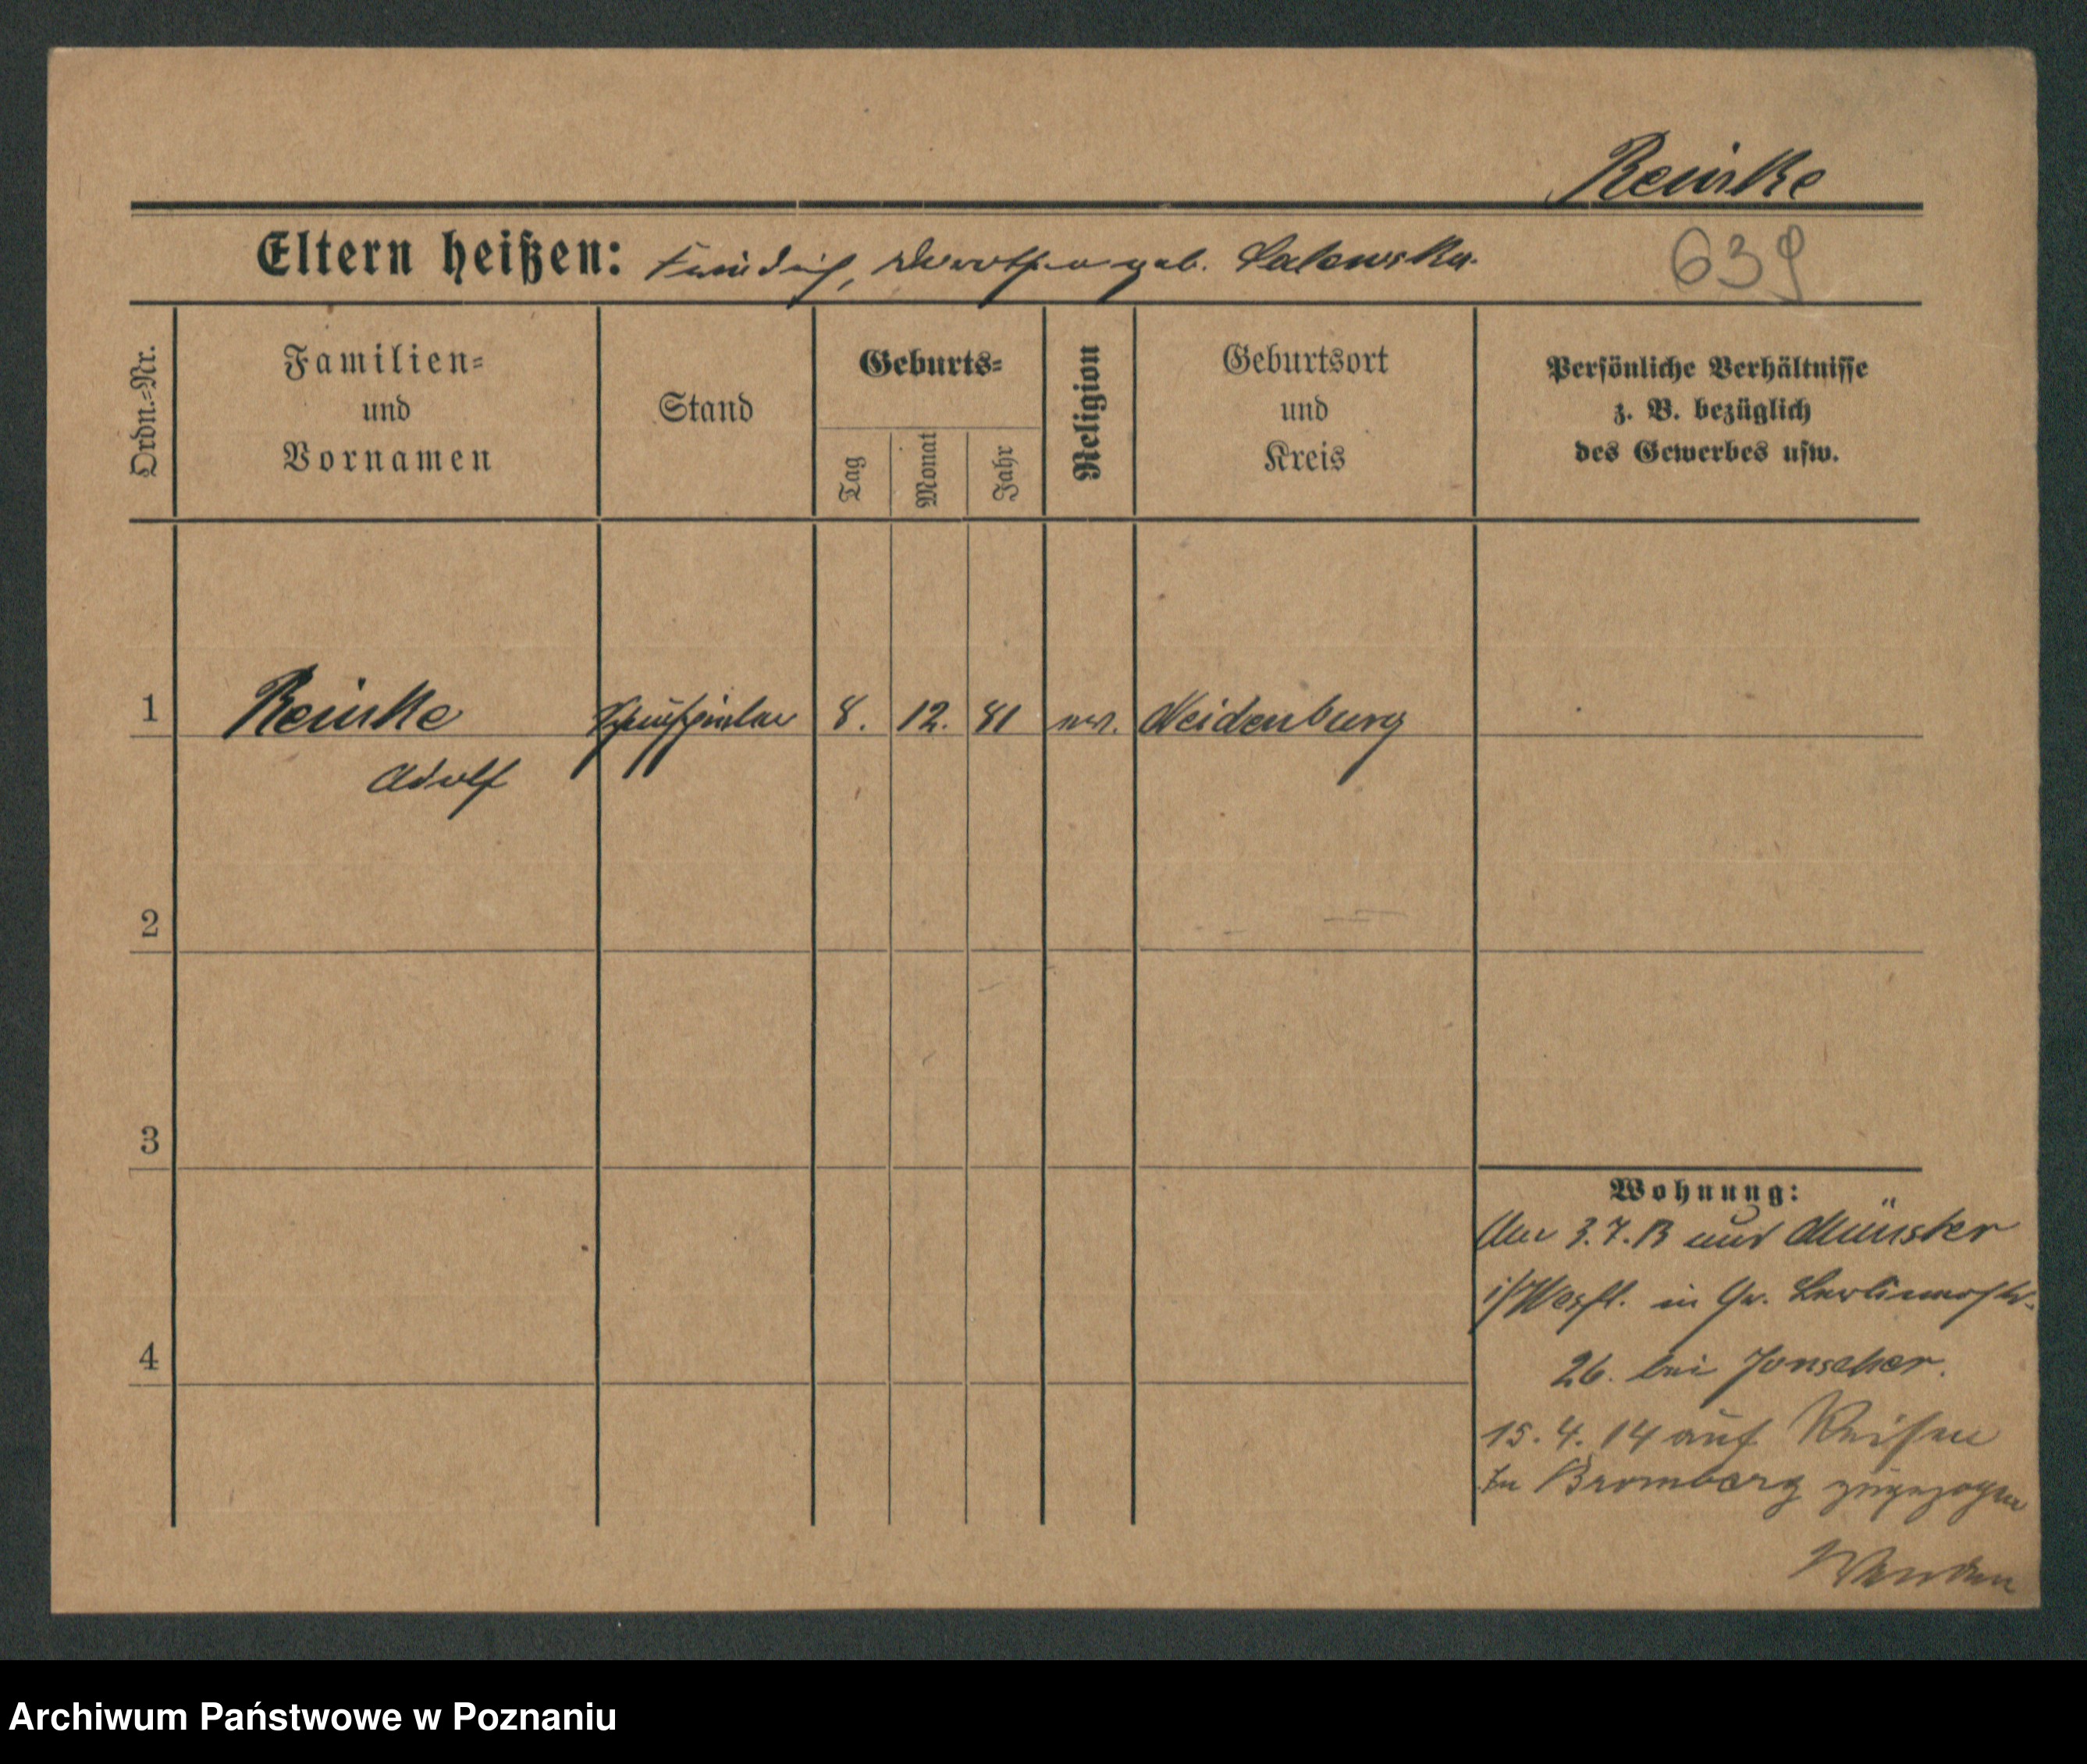 Reinke
Eltern heißen: Friedrich, Dorothea geb. Salewska.
639
Ordn.-Nr.
Familien-
und
Vornamen
Stand
Geburts-
Tag
Monat
Jahr
Religion
Geburtsort
und
Kreis
Persönliche Verhältnisse
z. B. bezüglich
des Gewerbes usw.
1 Reinke Schauspieler 8. 12. 81 ev. Neidenburg
Adolf
2
3
4
Wohnung:
3.7.13 aus Münster
i/Westf. in Gr. Berlinerstr.
26. bei Jonscher.
15. 4. 14 auf Reisen
In Bromberg zugezogen
Wenden
Archiwum Państwowe w Poznaniu